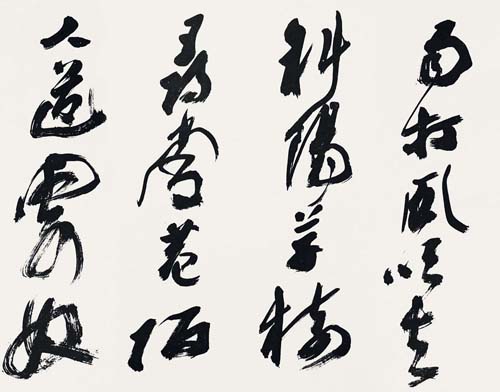 雨打風吹去
斜陽草樹
尋常巷陌
人道寄奴